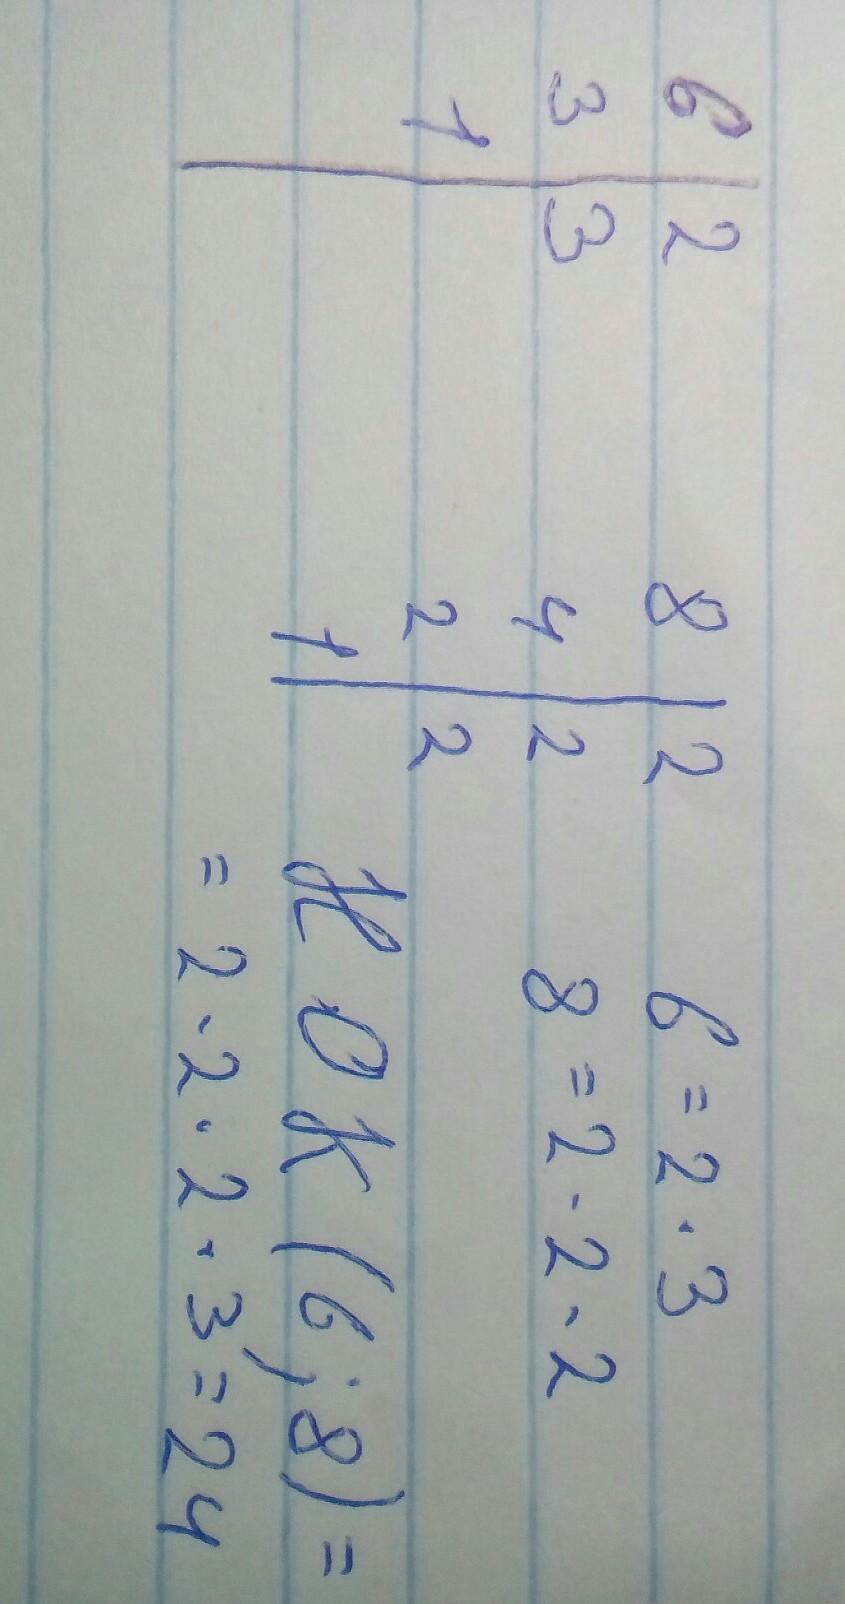 6 | 2
3 | 3
1 |
8 | 2
4 | 2
2 | 2
1 |
6 = 2 · 3
8 = 2 · 2 · 2
НОК (6; 8) =
= 2 · 2 · 2 · 3 = 24